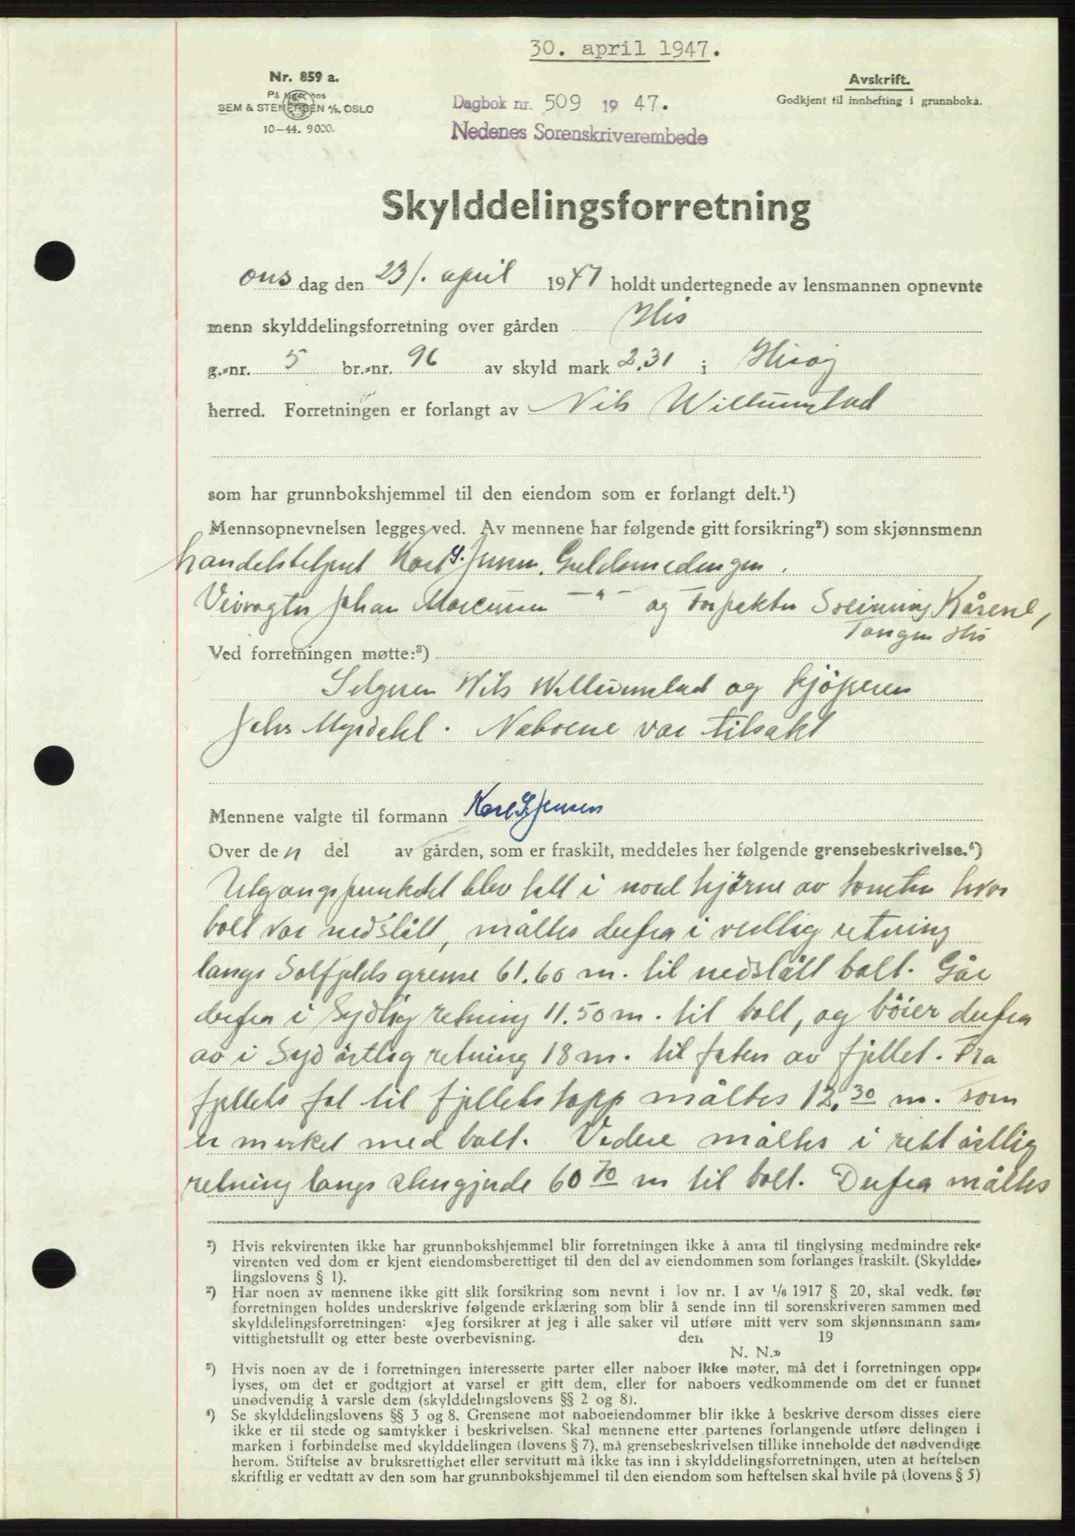 30. april 1947.
Nr. 859 a.
På lager hos
SEM & STENERSEN A/S, OSLO
10-44. 9000.
Dagbok nr. 509 1947.
Nedenes Sorenskriverembede
Avskrift.
Godkjent til innhefting i grunnboka.
Skylddelingsforretning
ons dag den 23/. april 1947 holdt undertegnede av lensmannen opnevnte
menn skylddelingsforretning over gården His
g.-nr. 5 br.-nr. 96 av skyld mark 2.31 i Hisøy
herred. Forretningen er forlangt av Nils Willumstad
som har grunnbokshjemmel til den eiendom som er forlangt delt.¹)
Mennsopnevnelsen legges ved. Av mennene har følgende gitt forsikring²) som skjønnsmenn
Karl S. Jensen, Guldsmedengen.
Johan - " - og Kårene,
Tangen His
Ved forretningen møtte:³)
Selgeren Nils Willumstad og kjøperen
Johs Myrdahl. Naboene var tilsakt
Mennene valgte til formann Karl S. Jensen
Over den del av gården, som er fraskilt, meddeles her følgende grensebeskrivelse.⁴)
Utgangspunktet blev satt i nord hjørne av tomten hvor
bolt var nedslått, måltes derfra i vestlig retning
langs Solfjelds grense 61.60 m. til nedslått bolt. Går
derfra i Sydlig retning 11.50 m. til bolt, og böier derfra
av i Syd östlig retning 18 m. til foten av fjellet. Fra
fjellets fot til fjellets topp måltes 12.30 m. som
er merket med bolt. Videre måltes i rett östlig
retning langs 60 70 m til bolt. Derfra måltes
¹) Hvis rekvirenten ikke har grunnbokshjemmel blir forretningen ikke å anta til tinglysing medmindre rek-
virenten ved dom er kjent eiendomsberettiget til den del av eiendommen som forlanges fraskilt. (Skyldde-
lingslovens § 1).
²) Har noen av mennene ikke gitt slik forsikring som nevnt i lov nr. 1 av 1/6 1917 § 20, skal vedk. før
forretningen holdes underskrive følgende erklæring som blir å sende inn til sorenskriveren sammen med
skylddelingsforretningen: «Jeg forsikrer at jeg i alle saker vil utføre mitt verv som skjønnsmann sam-
vittighetsfullt og etter beste overbevisning. den 19
N. N.»
³) Hvis noen av de i forretningen interesserte parter eller naboer ikke møter, må det i forretningen opp-
lyses, om det er godtgjort at varsel er gitt dem, eller for naboers vedkommende om det er funnet
unødvendig å varsle dem (skylddelingslovens §§ 2 og 8).
⁴) Se skylddelingslovens §§ 3 og 8. Grensene mot naboeiendommer blir ikke å beskrive dersom disses eiere
ikke er til stede og samtykker i beskrivelsen. Skal mennene etter partenes forlangende utføre delingen i
marken i forbindelse med skylddelingen (lovens § 7), må grensebeskrivelsen tillike inneholde det nødvendige
herom. Stiftelse av bruksrettighet eller servitutt må ikke tas inn i skylddelingsforretningen, uten at heftelsen
skriftlig er vedtatt av den som har grunnbokshjemmel til den eiendom som heftelsen skal hvile på (lovens § 5)